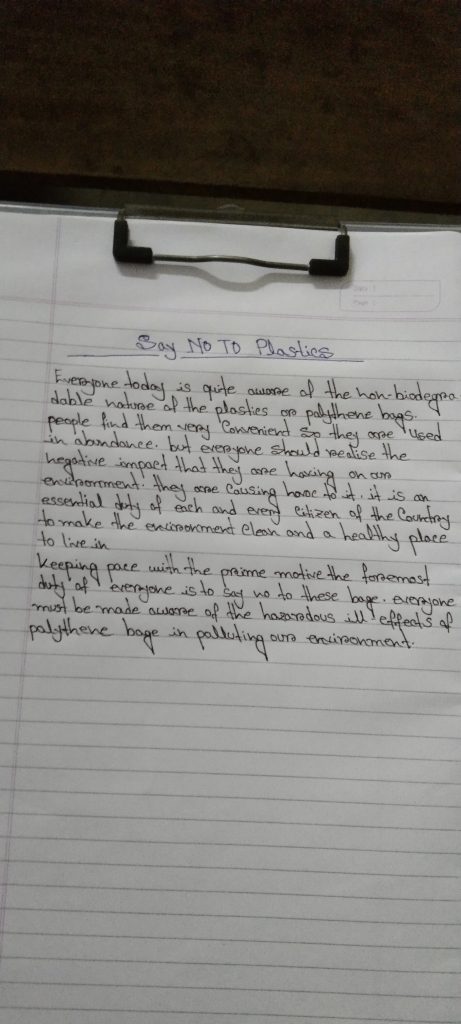 Say No To Plastics
Everyone today is quite aware of the non-biodegra
dable nature of the plastics or polythene bags.
people find them very convenient so they are used
in abundance. but everyone should realise the
negative impact that they are having on our
environment. they are causing havoc to it. it is an
essential duty of each and every citizen of the Country
to make the environment clean and a healthy place
to live in
Keeping pace with the prime motive the foremost
duty of everyone is to say no to these bage. everyone
must be made aware of the hazardous ill effects of
polythene bage in polluting our environment.